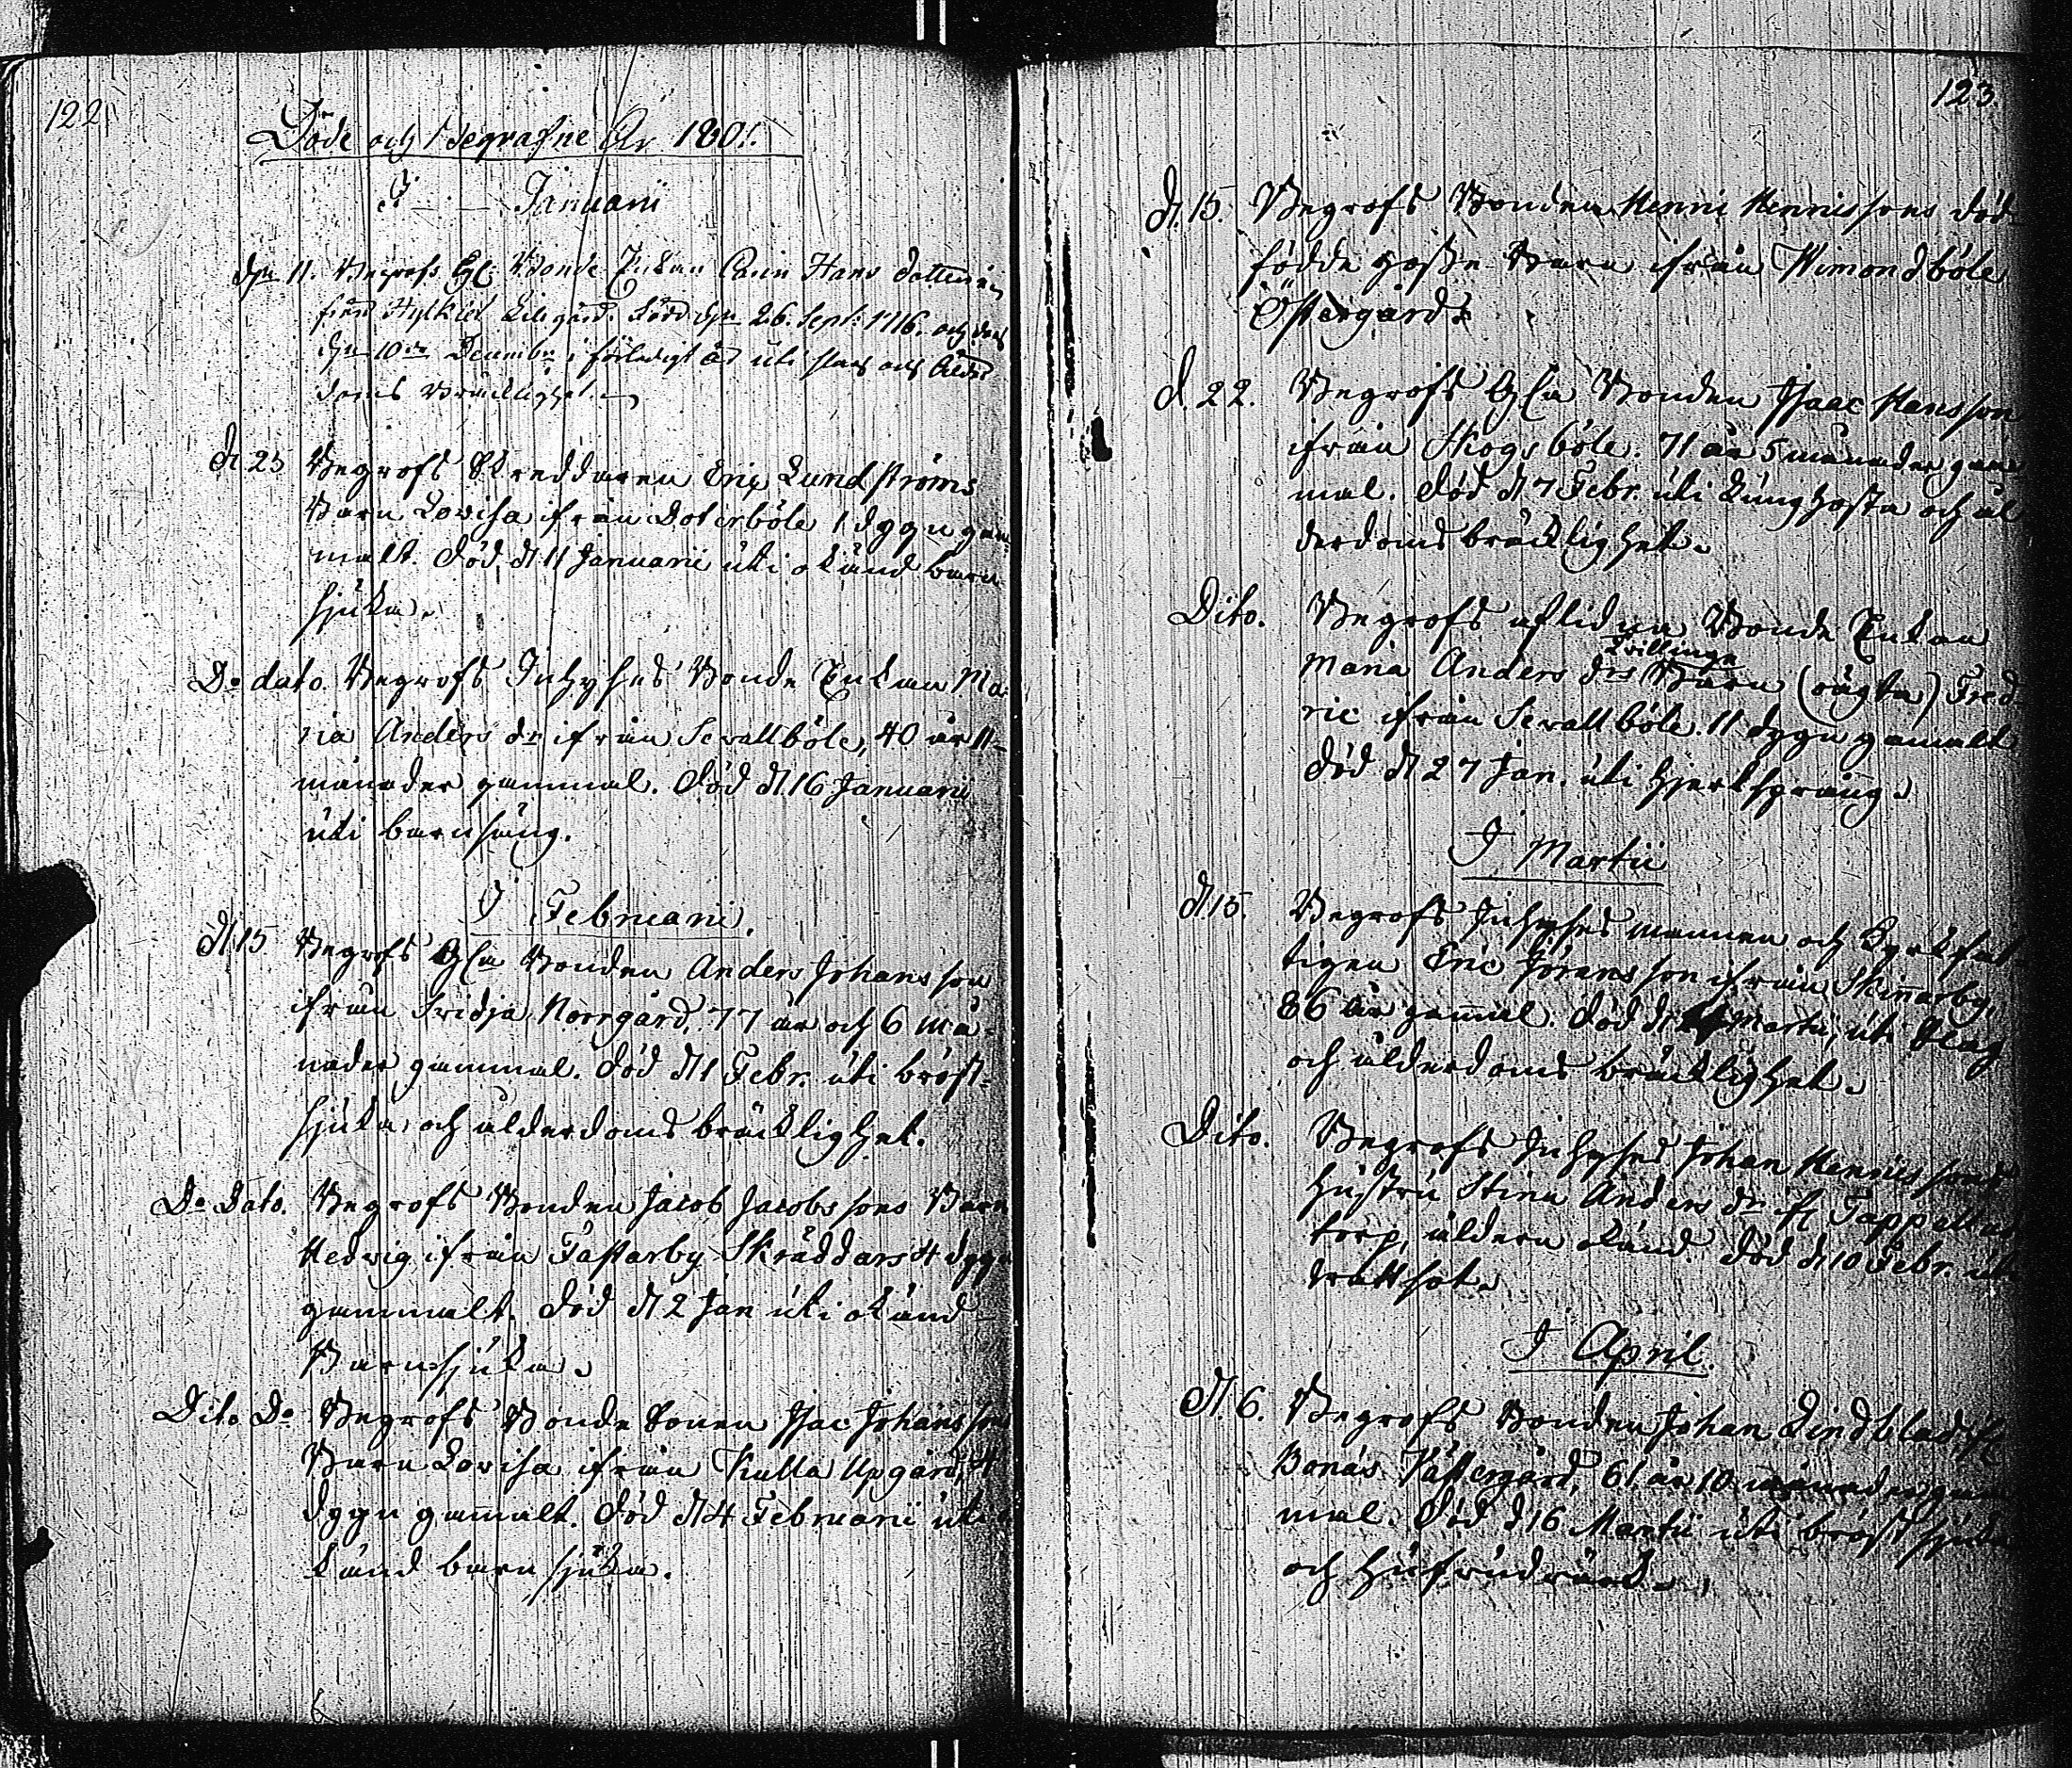 122.
Döde och Begrafne År 1801.
I Januarii
den 11. Begrofs Gl. Bonde Enkan Carin Hans dotter i
från Hylkiet Lillgård. född den 26. Sept: 1716. och död
den 10de Decembr: i förledigt år uti slag och ålder
doms bräcklighet.
d. 25 Begrofs Skreddaren Eric Lundströms
Barn Lovisa ifrån Doterböle 1 dygn gam
malt. Död d. 11 Januarii uti okänd barn
sjuka.
Do dato. Begrofs Inhyses Bonde Enkan Ma
ria Anders dr ifrån Sevallböle, 40 år 11
månader gammal. Död d. 16 Januarii
uti barnsäng.
I Februarii.
d. 15 Begrofs Gla Bonden Anders Johansson
ifrån Fridja Norrgård, 77 år och 6 må
nader gammal. Död d. 1 Febr. uti bröst-
sjuka, och ålderdoms bräcklighet.
Do Dato. Begrofs Bonden Jacob Jacobssons Barn
Hedvig ifrån Fastarby Skräddars 4 dygn
gammalt. Död d. 2 Jan uti okänd
Barnsjuka.
Dito Do Begrofs Bonde Sonen Isac Johanssons
Barn Lovisa ifrån Kulla Upgård, 4
dygn gam̄alt. Död d. 4 Februarii uti o
känd barnsjuka.
123.
d. 15. Begrofs Bonden Henric Henrissons död
födde gosse Barn ifrån Wimondböle
Östergård.
d. 22. Begrofs Gla Bonden Isaac Hansson
ifrån Skogsböle. 71 år 5 månader gam
mal. Död d. 7 Febr. uti Lunghosta och ål
derdoms bräcklighet.
Dito. Begrofs aflidna Bonde Enkan
Tvillinge
Maria Anders drs Barn (oägta) Fred
ric ifrån Sevallböle. 11 dygn gamalt
Död d. 27 Jan. uti hjertsprång.
I Martii
d. 15. Begrofs Inhyses mannen och Kyrkfat
tigen Eric Jöransson ifrån Skinnarby,
86 år gam̄al. Död d. Martii, uti Slag
och ålderdoms bräcklighet.
Dito. Begrofs Inhyses Johan Henrissons
hustru Stina Anders dr ifr.
torp, åldern okänd. Död d. 10 Febr. uti
vattsot.
I April.
d. 6. Begrofs Bonden Johan Lindblad, ifr
Bonäs Västergård, 61 år 10 månader gam
mal. Död d. 16 Martii uti bröstsjuka
och hufvudvärk.